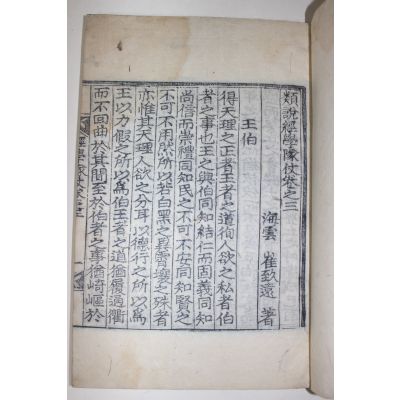 類說經學隊仗卷之三
海雲 崔致遠 著
王伯
得天理之正者王者之道徇人欲之私者伯
者之事也王之與伯同知結仁而固義同知
尚信而崇禮同知民之不可不安同知賢之
不可不用然所以若白黑之異霄壤之殊者
亦惟其天理人欲之分耳以德行之所以為
王以力假之所以為伯王者之道猶履通衢
而不回曲於其間至於伯者之事猶崎嶇於
經學隊仗卷之三